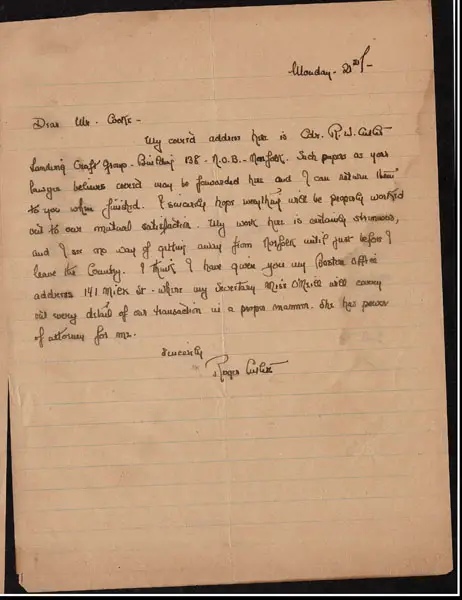 Monday - 22nd -
Dear Mr. Cooke -
My correct address here is Cdr. R. W. Cutler
Landing Craft Group - Building 138 - N.O.B. - Norfolk. Such papers as your
lawyer believes correct may be forwarded here and I can return them
to you when finished. I sincerely hope everything will be properly worked
out to our mutual satisfaction. My work here is certainly strenuous,
and I see no way of getting away from Norfolk until just before I
leave the Country. I think I have given you my Boston Office
address 141 Milk St. - where my Secretary Miss O'Neill will carry
out every detail of our transaction in a proper manner. She has power
of attorney for me.
Sincerely
Roger Cutler